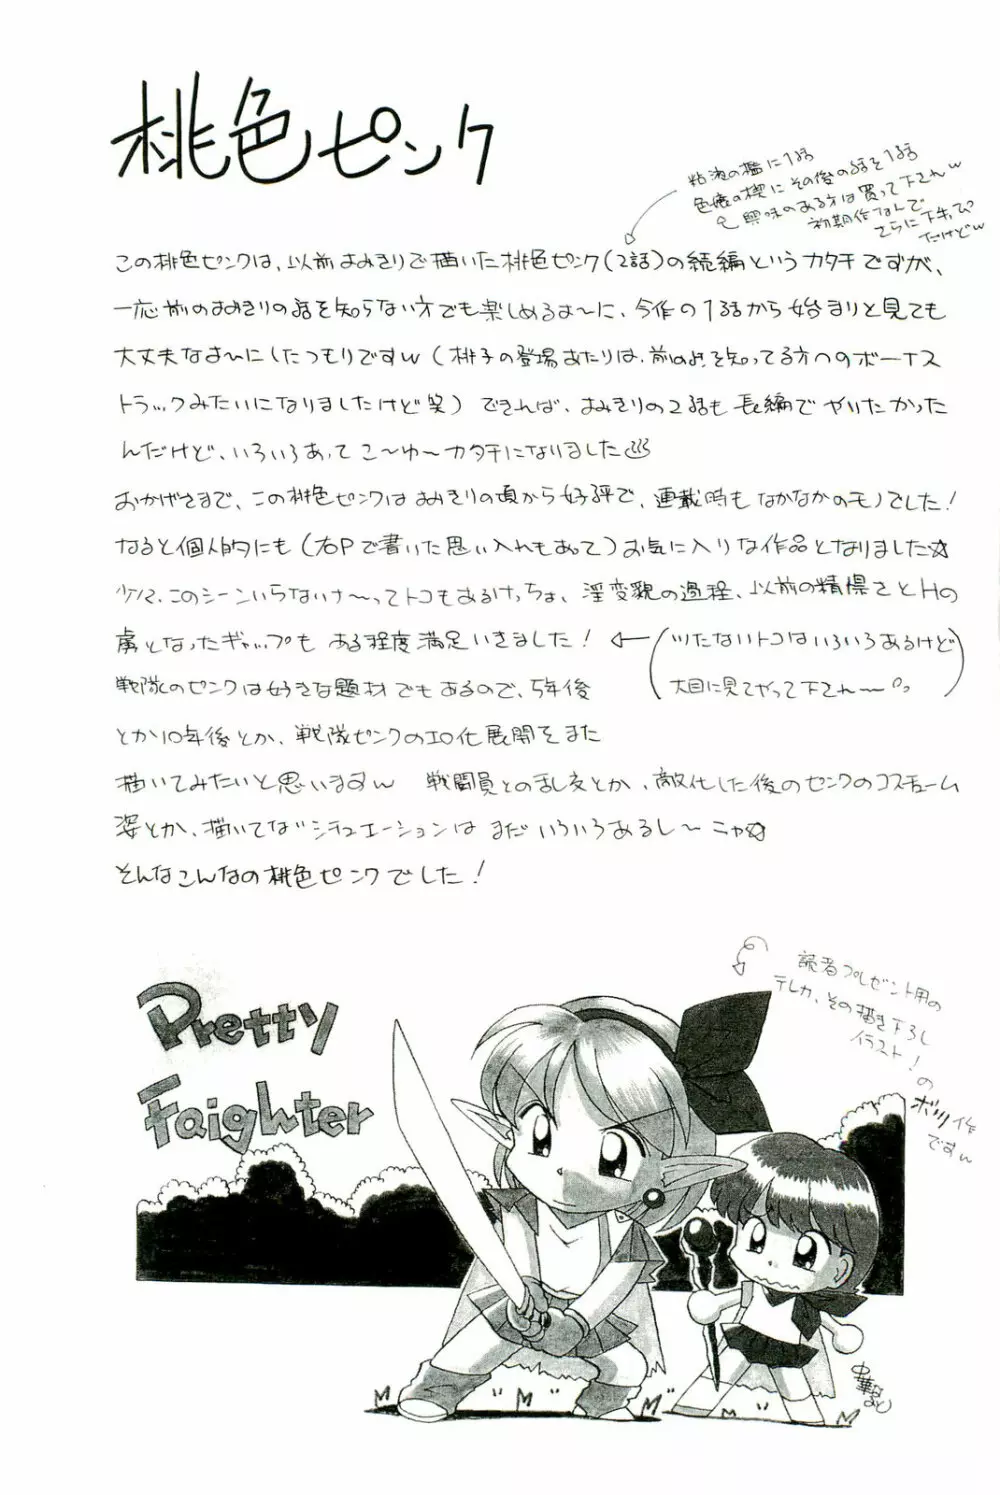 桃色ピンク
粘液の檻に1話
色痕の楔にその後の話を1話
興味のある方は買って下さいw
初期作なんで
さらに下手っぴ
だけどw
この桃色ピンクは、以前よみきりで描いた桃色ピンク(2話)の続編というカタチですが、
一応前のよみきりの話を知らない方でも楽しめるよ〜に、今作の1話から始まりと見ても
大丈夫なよ〜にしたつもりですw(桃子の登場あたりは、前のよみを知ってる方へのボーナス
トラックみたいになりましたけど笑)できれば、よみきりの2話も長編でやりたかった
んだけど、いろいろあってこ〜ゆ〜カタチになりました
おかげさまで、この桃色ピンクはよみきりの頃から好評で、連載時もなかなかのモノでした!
なると個人的にも(右Pで書いた思い入れもあって)お気に入りな作品となりました☆
少々、このシーンいらないナ〜ってトコもあるけっちょ、淫変貌の過程、以前の精悍さとHの
虜となったギャップもある程度満足いきました!
(ツたないトコはいろいろあるけど
大目に見てやって下さい〜)
戦隊のピンクは好きな題材でもあるので、5年後
とか10年後とか、戦隊ピンクのエロ化展開をまた
描いてみたいと思いますw 戦闘員との乱交とか、敵化した後のピンクのコスチューム
姿とか、描いてないシチュエーションはまだいろいろあるし〜ニャ☆
そんなこんなの桃色ピンクでした!
読者プレゼント用の
テレカ、その描き下ろし
イラスト!
のボツ作
ですw
Pretty
Faighter
中華なると